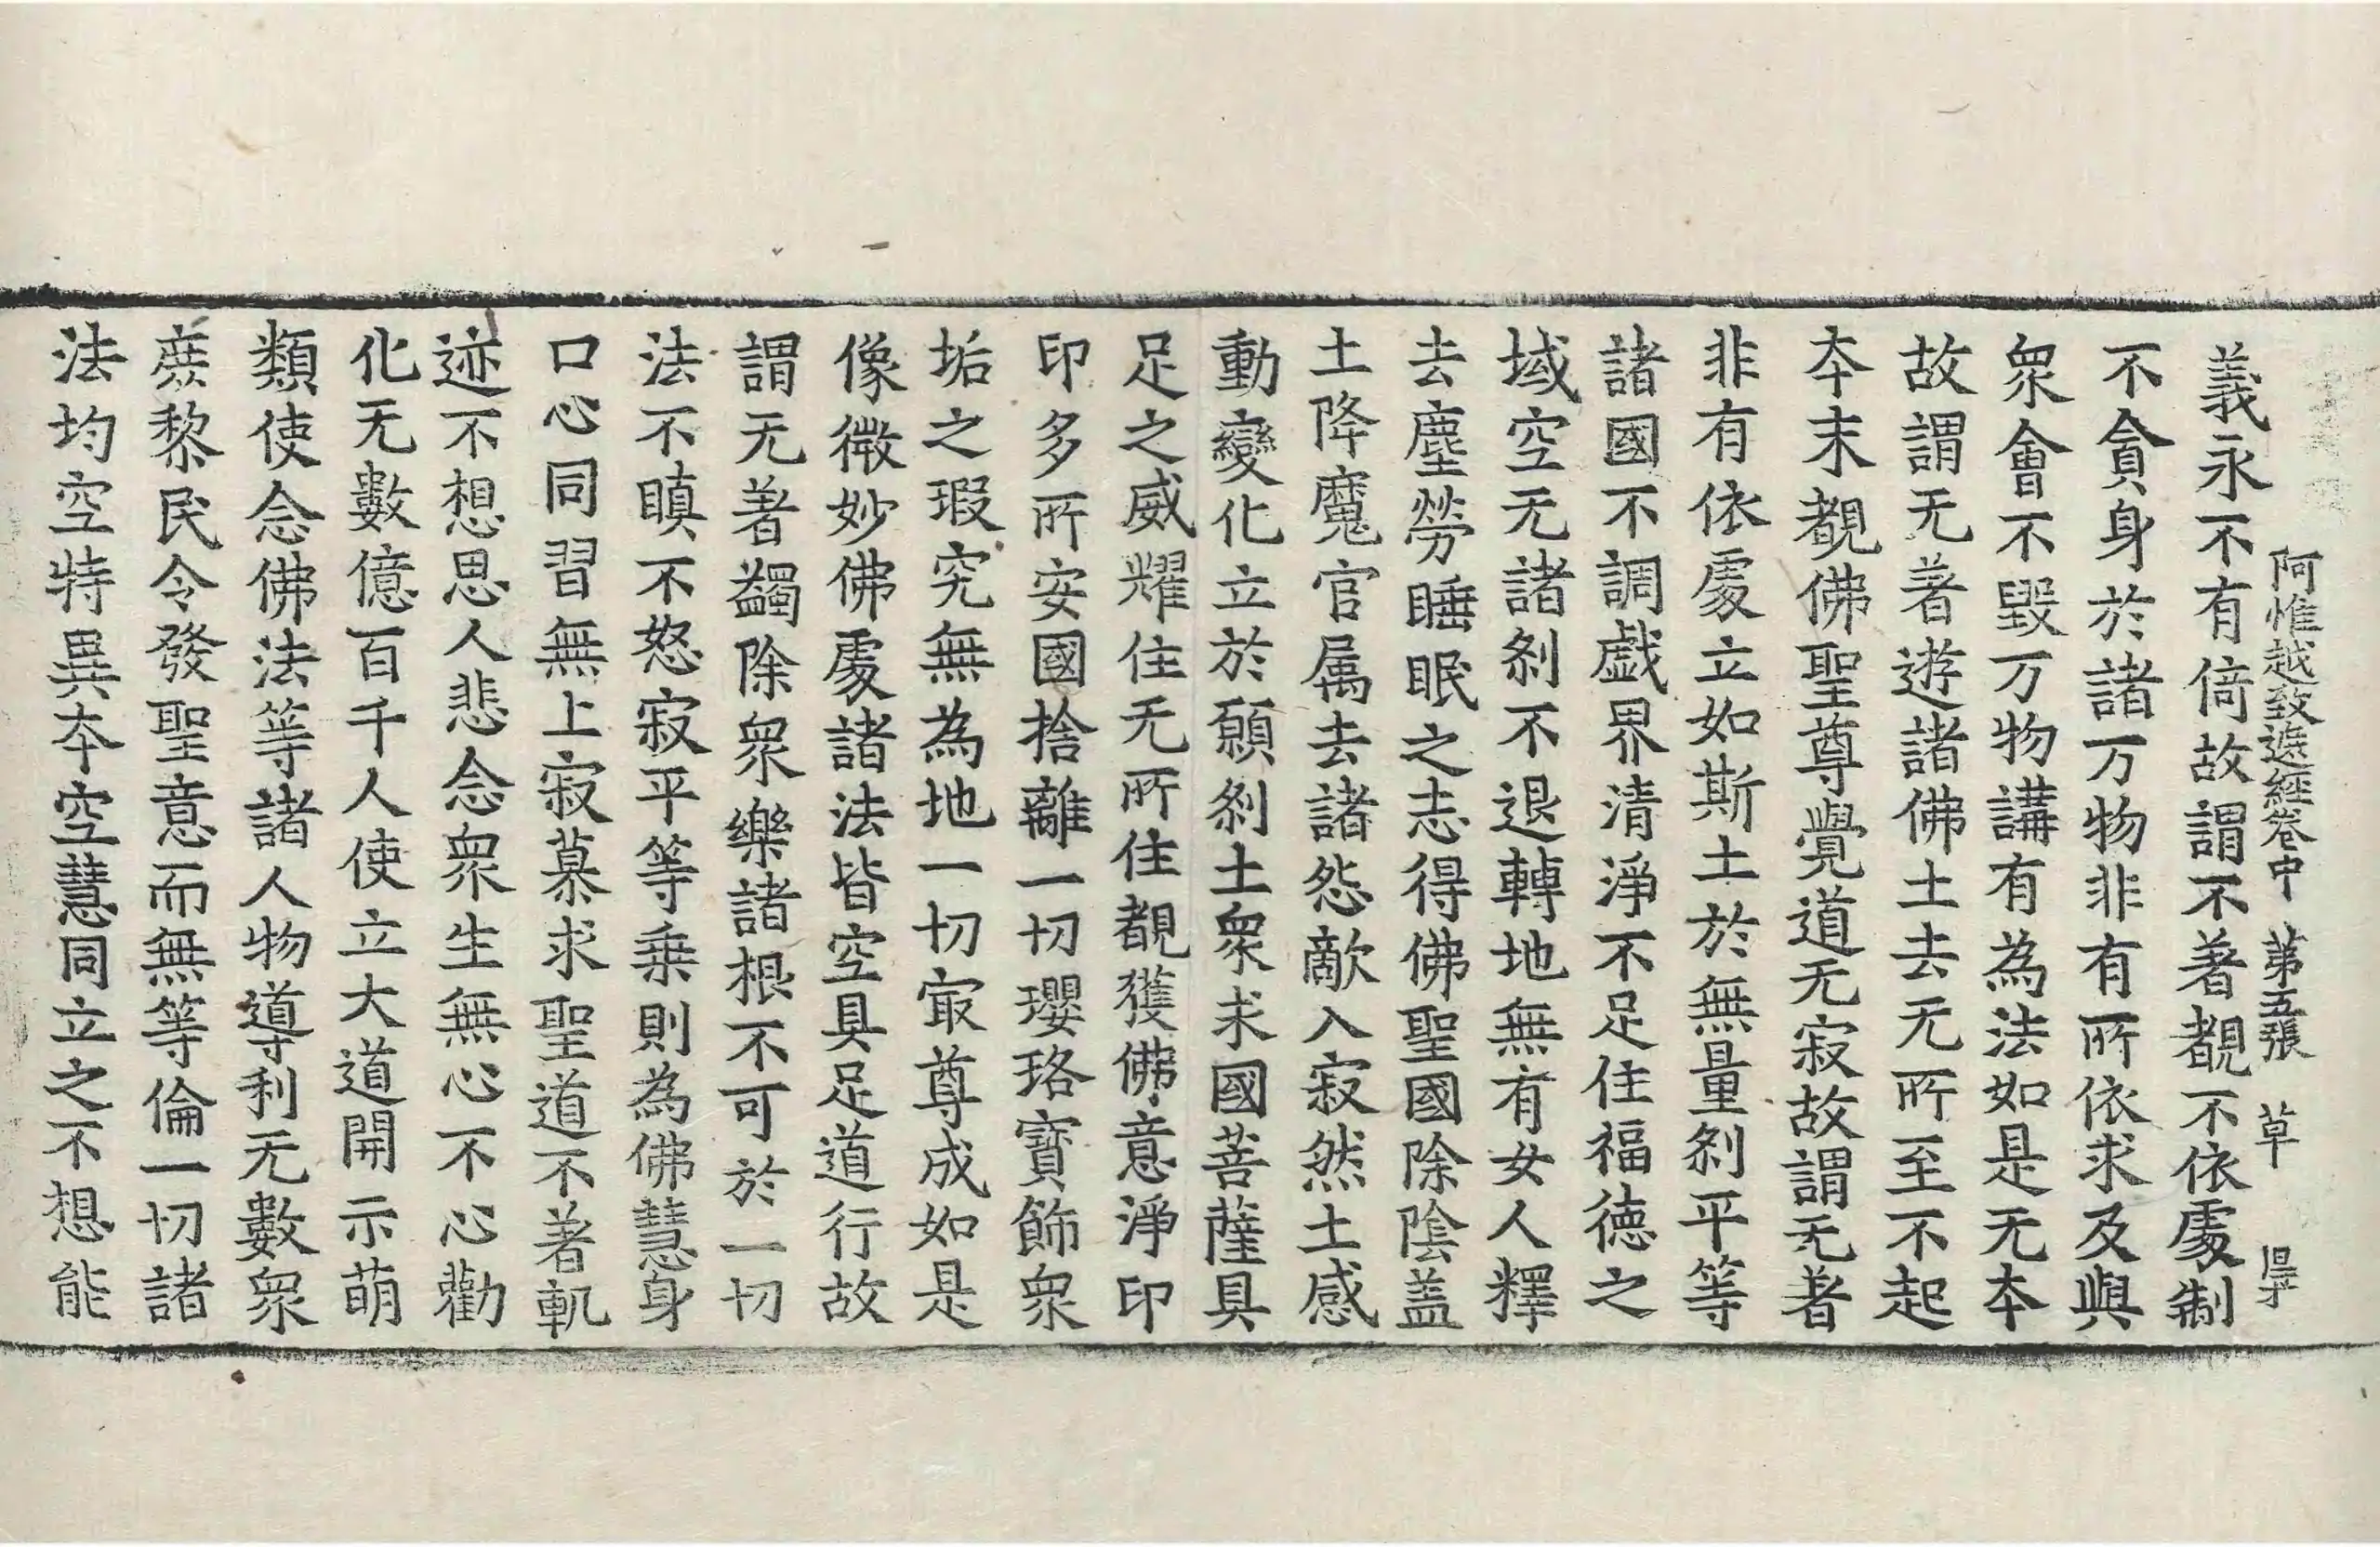 阿惟越致遮經卷中　第五張　草
義永不有倚故謂不著覩不依處制
不貪身於諸万物非有所依求及與
衆會不毀万物講有為法如是无夲
故謂无著遊諸佛土去无所至不起
夲末覩佛聖尊覺道无寂故謂无著
非有依處立如斯土於無量刹平等
諸國不調戯界清淨不足住福德之
域空无諸刹不退轉地無有女人釋
去塵勞睡眠之志得佛聖國除陰盖
土降魔官属去諸怨敵入寂然土感
動變化立於願刹土衆求國菩薩具
足之威燿住无所住覩獲佛意淨印
印多所安國捨離一切瓔珞寶飾衆
垢之瑕究無為地一切㝡尊成如是
像微妙佛處諸法皆空具足道行故
謂无著蠲除衆樂諸根不可於一切
法不瞋不怒寂平等乗則為佛慧身
口心同習無上寂慕求聖道不著軌
迹不想思人悲念衆生無心不心勸
化无數億百千人使立大道開示萌
類使念佛法等諸人物導利无數衆
庶黎民令發聖意而無等倫一切諸
法均空特異夲空慧同立之不想能